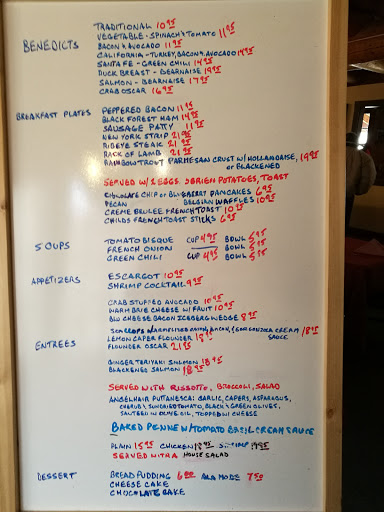 BENEDICTS
TRADITIONAL 10.95
VEGETABLE - SPINACH & TOMATO 11.95
BACON & AVOCADO 11.95
CALIFORNIA - TURKEY, BACON & AVOCADO 14.95
SANTA FE - GREEN CHILI 14.95
DUCK BREAST - BEARNAISE 19.95
SALMON - BEARNAISE 17.95
CRAB OSCAR 16.95
BREAKFAST PLATES
PEPPERED BACON 11.95
BLACK FOREST HAM 14.95
SAUSAGE PATTY 11.95
NEW YORK STRIP 21.95
RIBEYE STEAK 21.95
RACK OF LAMB 21.95
RAINBOW TROUT PARMESAN CRUST W/ HOLLANDAISE, 19.95
OR BLACKENED
SERVED W/ 2 EGGS OBRIEN POTATOES, TOAST
CHOCOLATE CHIP or BLUEBERRY PANCAKES 6.95
PECAN BELGIAN WAFFLES 10.95
CREME BRULEE FRENCH TOAST 10.95
CHILDS FRENCH TOAST STICKS 6.95
SOUPS
TOMATO BISQUE CUP 4.95 BOWL 5.95
FRENCH ONION BOWL 5.95
GREEN CHILI CUP 4.95 BOWL 5.95
APPETIZERS
ESCARGOT 10.95
SHRIMP COCKTAIL 9.95
CRAB STUFFED AVOCADO 10.95
WARM BRIE CHEESE W/ FRUIT 10.95
BLU CHEESE BACON ICEBERG WEDGE 8.95
ENTREES
SCALLOPS CARMELIZED ONION, BACON, & GORGONZOLA CREAM SAUCE 18.95
LEMON CAPER FLOUNDER 18.95
FLOUNDER OSCAR 21.95
GINGER TERIYAKI SALMON 18.95
BLACKENED SALMON 18.95
SERVED WITH RISSOTTO, BROCCOLI, SALAD
ANGELHAIR PUTTANESCA: GARLIC, CAPERS, ASPARAGUS,
CHERUB & SUNDRIED TOMATO, BLACK & GREEN OLIVES,
SAUTEED IN OLIVE OIL, TOPPED W/ CHEESE
BAKED PENNE W/ TOMATO BASIL CREAM SAUCE
PLAIN 15.95 CHICKEN 18.95 SHRIMP 19.95
SERVED WITH A HOUSE SALAD
DESSERT
BREAD PUDDING 6.00 ALA MODE 7.50
CHEESE CAKE
CHOCOLATE CAKE